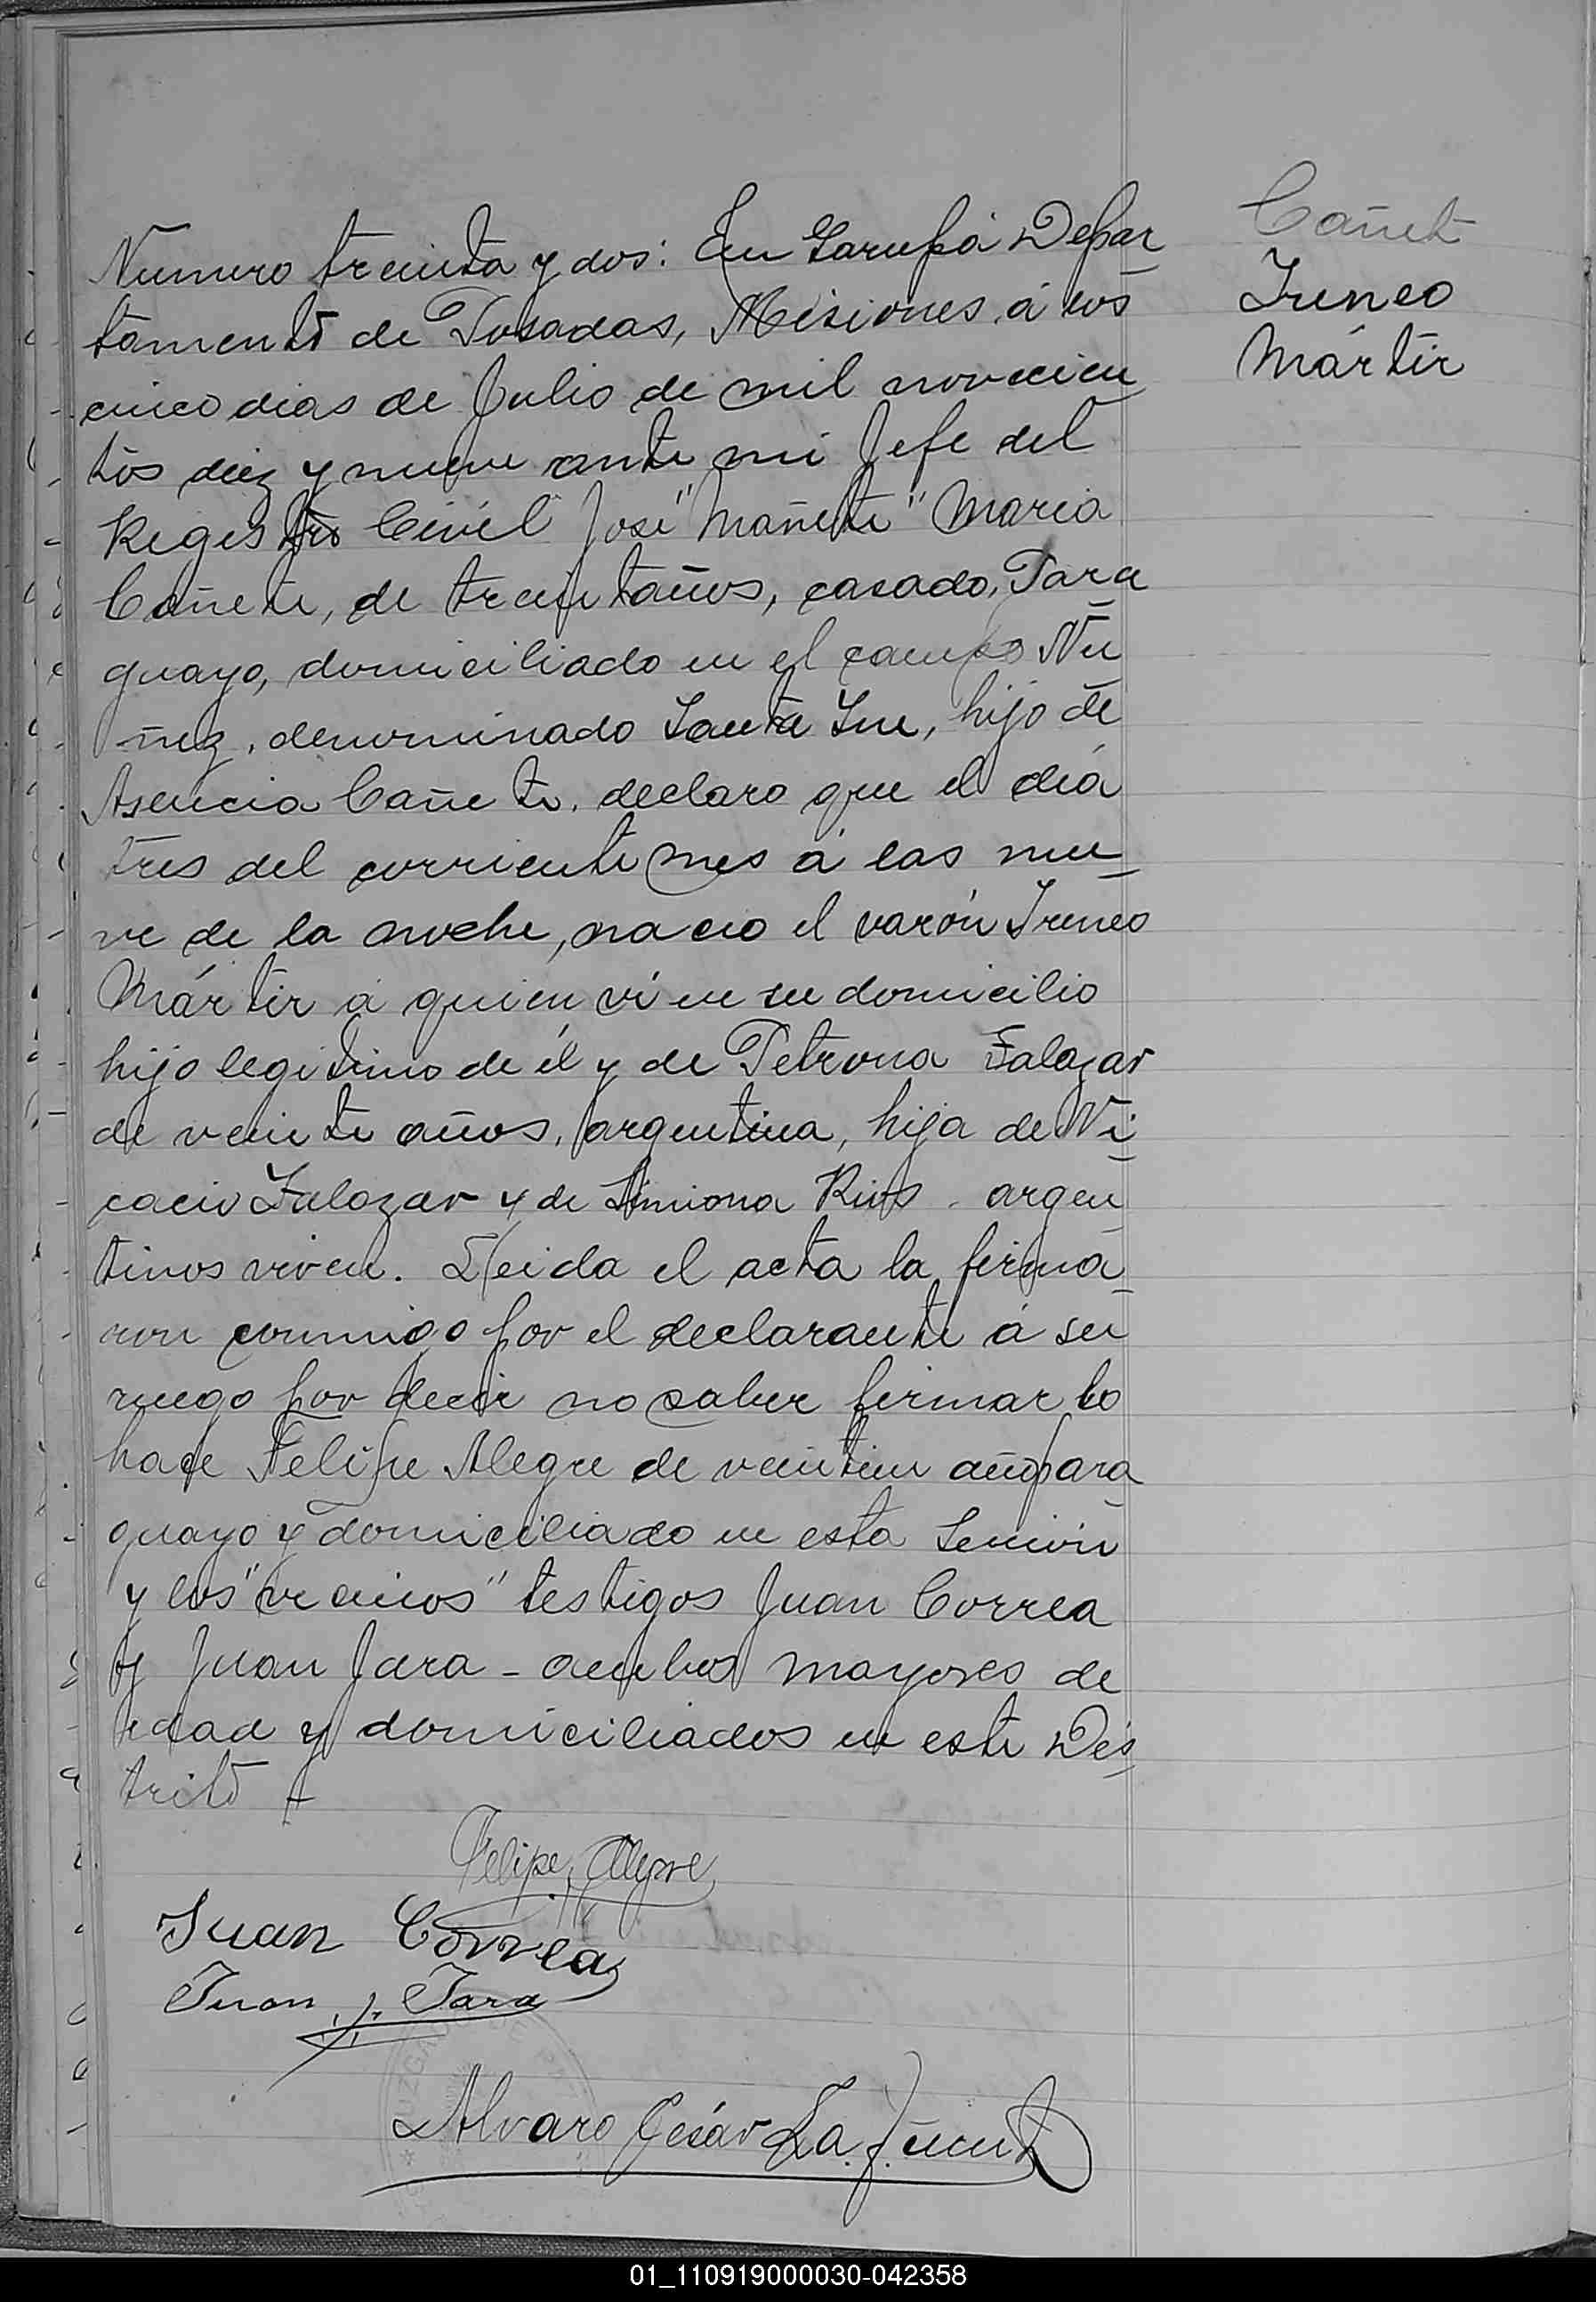 Cañete
Ireneo
Mártir
Numero treinta y dos: En Garupá Depar
tamento de Posadas, Misiones á los
cinco dias de Julio de mil novecien
tos diez y nueve ante mi Jefe del
Registro Civil José "Mañete" Maria
Cañete, de treintaños, casado, Para
guayo, domiciliado en el campo Nu
ñez, denominado Santa Ine, hijo de
Asencia Cañete, declaro que el dia
tres del corriente mes á las nue
ve de la noche, nacio el varón Ireneo
Mártir á quien ví en su domicilio
hijo legitimo de él y de Petrona Salazar
de veinte años, argentina, hija de Ni
cacio Salazar y de Simiona Rios argen
tinos viven. Leida el acta la firma
ron conmigo por el declarante á su
ruego por decir no saber firmar lo
hace Felipe Alegre de veintiun año para
guayo y domiciliado en esta
y los "vecinos" testigos Juan Correa
y Juan Jara - ambos mayores de
edad y domiciliados en este Dis
trito -
Felipe Alegre
Juan Correa
Juan J. Jara
Alvaro César La Fuente
01_110919000030-042358